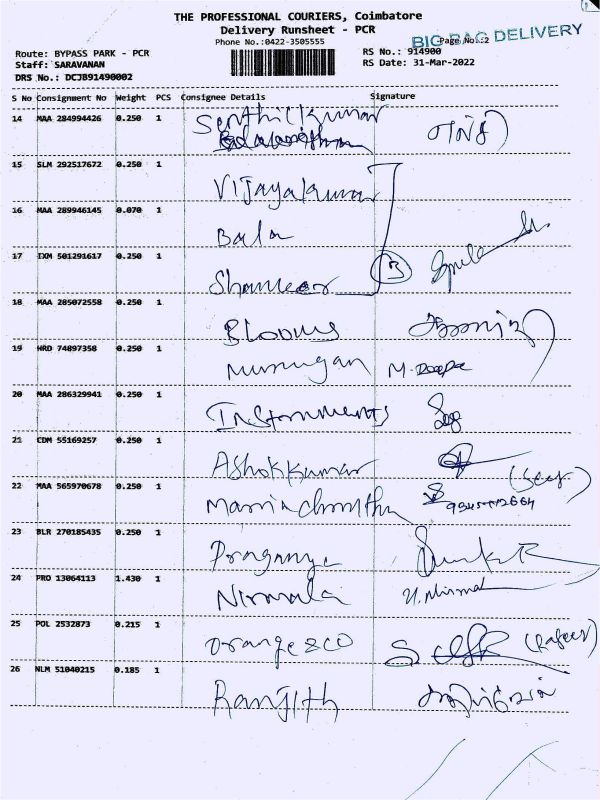 THE PROFESSIONAL COURIERS, Coimbatore
Delivery Runsheet - PCR
BIG BAG DELIVERY
Phone No.:0422-3505555
Page No.:2
Route: BYPASS PARK - PCR
RS No.: 914900
Staff: SARAVANAN
RS Date: 31-Mar-2022
DRS No.: DCJB91490002
S No Consignment No Weight PCS Consignee Details Signature
14 MAA 284994426 0.250 1 Senthilkumar
15 SLM 292517672 0.250 1 Vijayakumar
16 MAA 289946145 0.070 1 Bala
17 IXM 501291617 0.250 1 Shankar 3
18 MAA 285072558 0.250 1 Blooms
19 HRD 74897358 0.250 1 Murugan M. Deepa
20 MAA 286329941 0.250 1 Instruments
21 CDM 55169257 0.250 1 Ashokkumar
22 MAA 565970678 0.250 1
23 BLR 270185435 0.250 1 Praganya
24 PRO 13064113 1.430 1 Nirmala
25 POL 2532873 0.215 1 Orange &CO
26 NLM 51040215 0.185 1 Ranjith